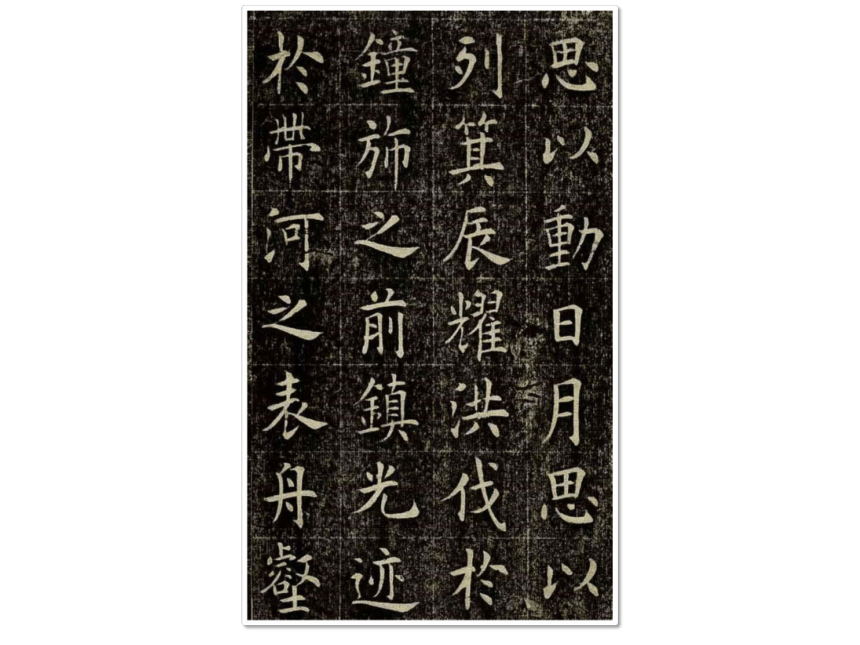 思以動日月思以
列箕辰耀洪伐於
鐘斾之前鎮光迹
於帶河之表舟壑